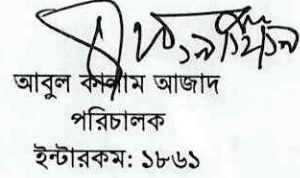 আবুল কালাম আজাদ
পরিচালক
ইন্টারকম: ১৮৬১